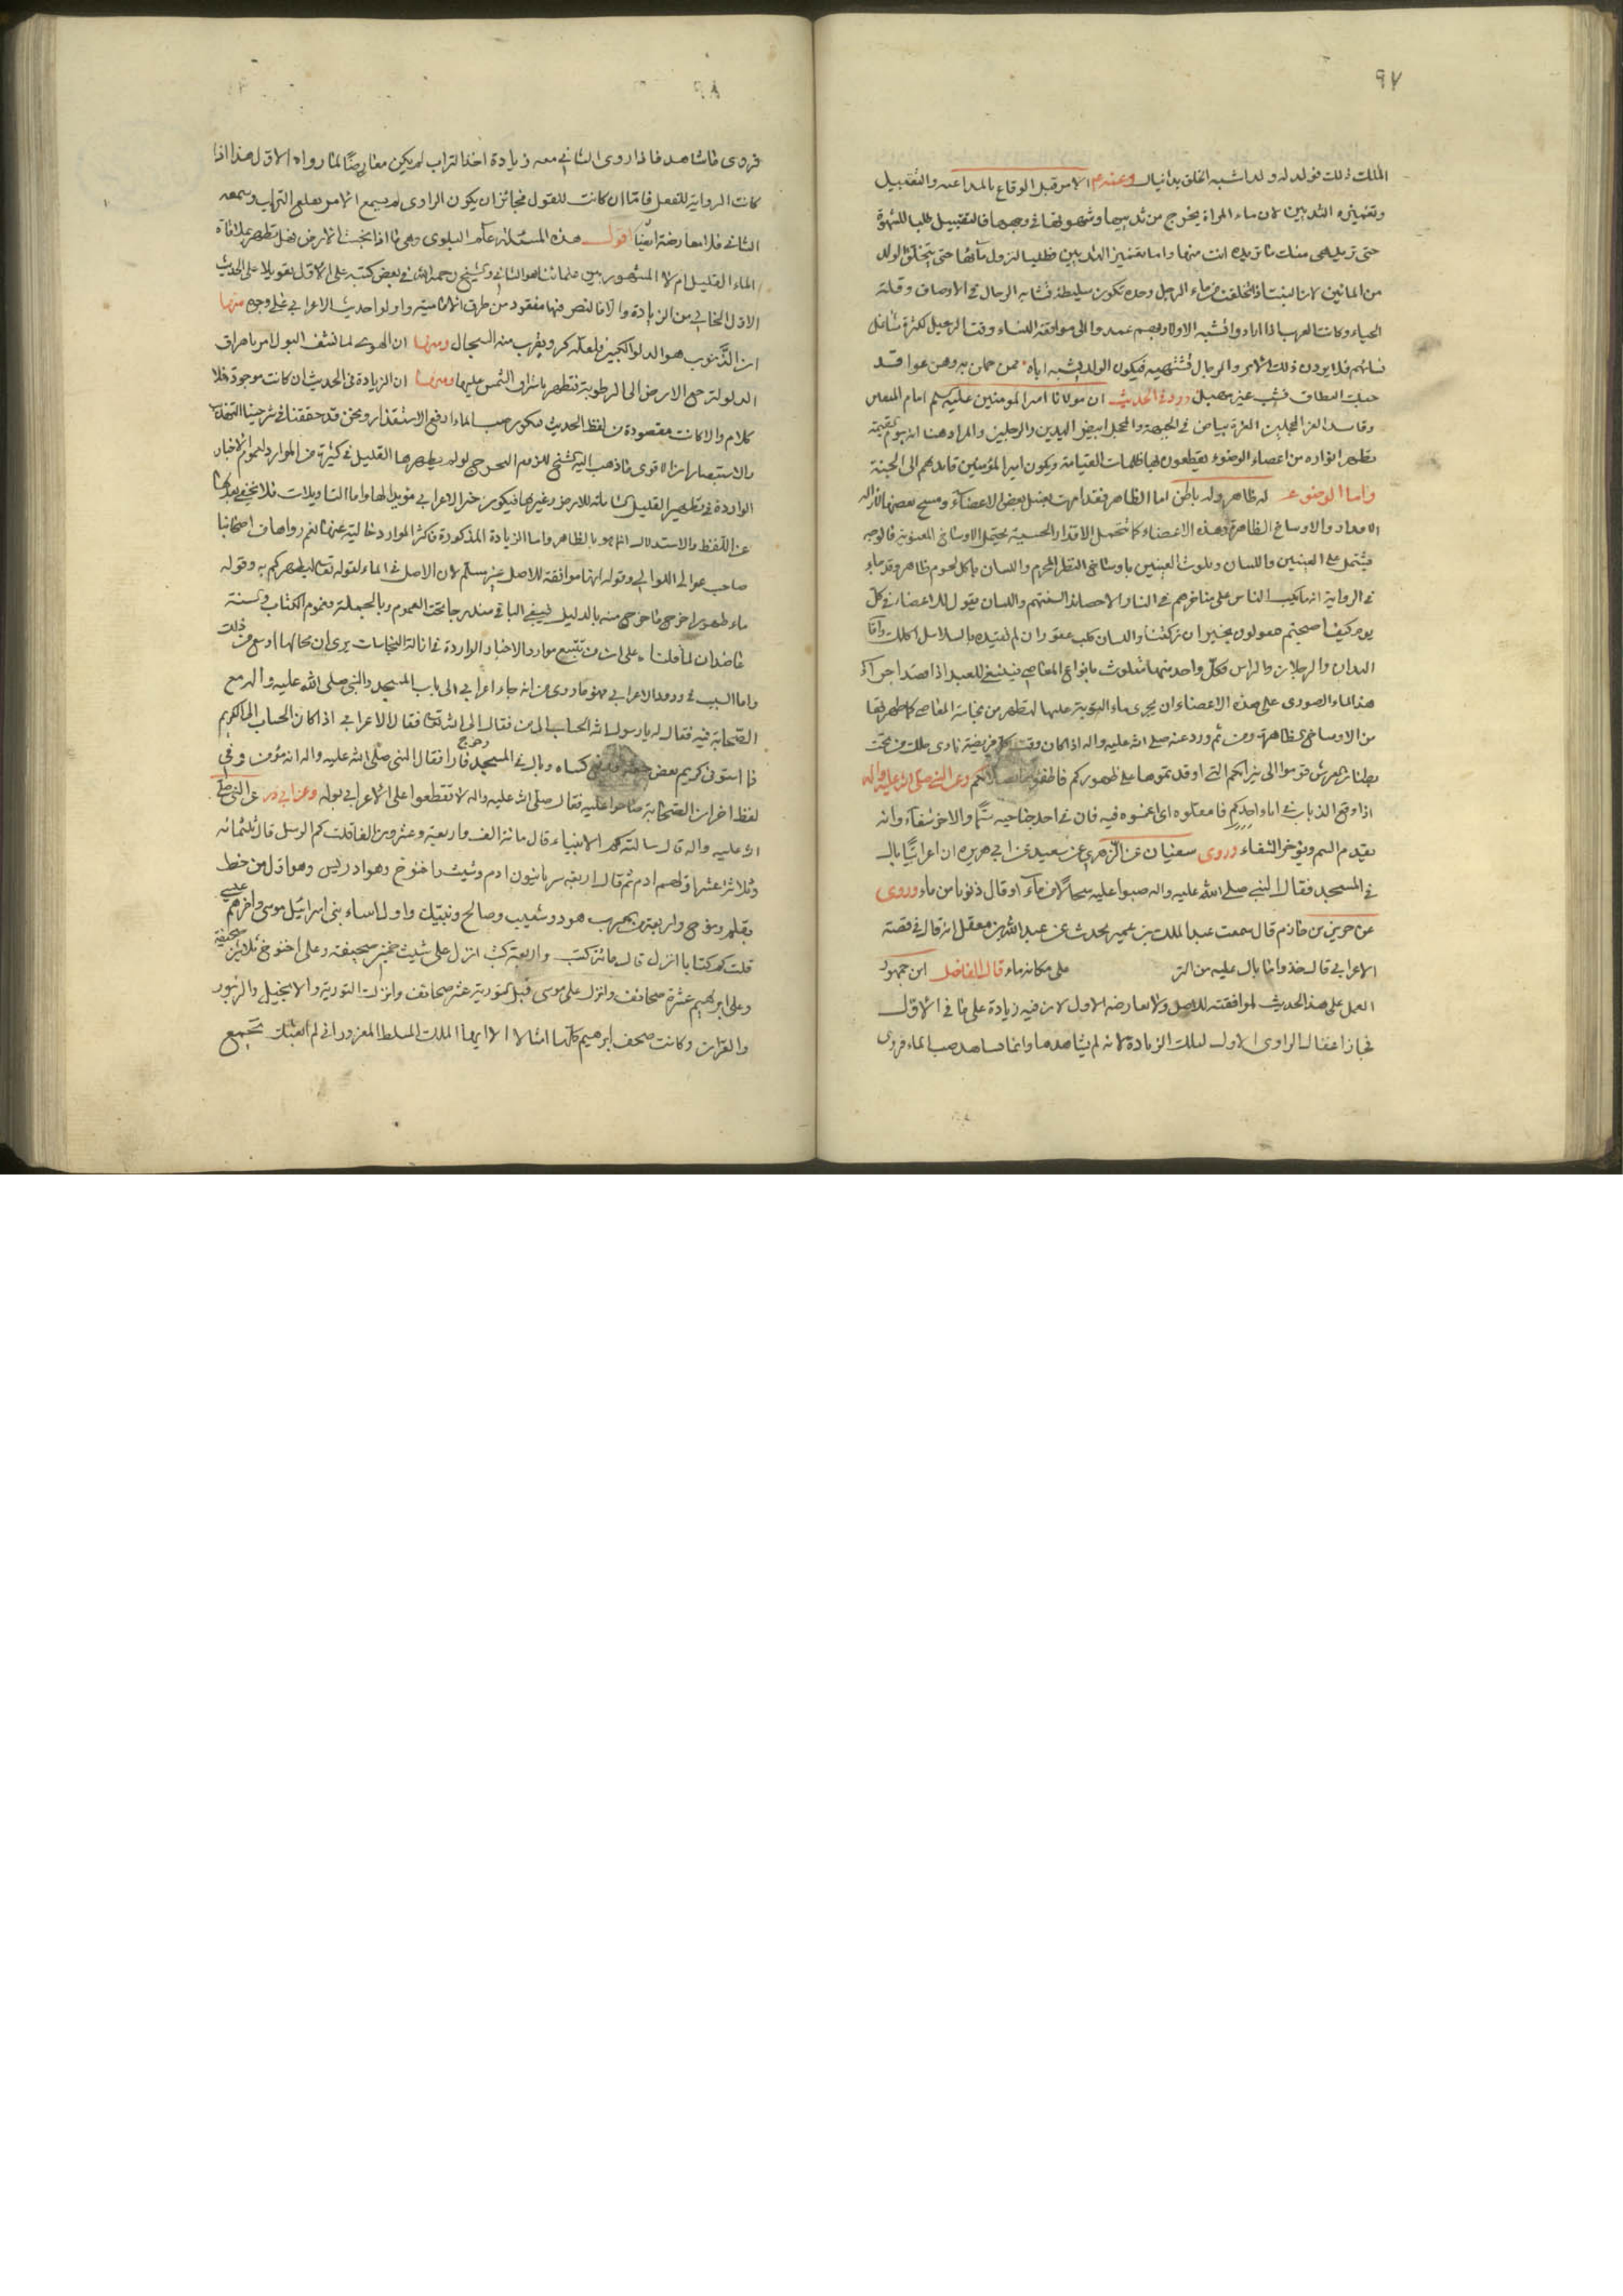 ٩٧
الملك ذلك فولد له ولد اشبه الخلق بدانيال وعنه م الامر قبل الوقاع بالملاعبه والتقبيل
وتغميز الثديين لان ماء المراة يخرج من ثدييها وشهوتها في وجهها فالتقبيل طلبا للشهوة
حتى تريد هى منك ما تريده انت منها واما تغميز الثديين فطلب النزول مائها حتى يتخلق الولد
من المائين لان البنت اذا تخلقت من ماء الرجل وحده تكون سليطة تشابه الرجال في الاوصاف وقلة
الحياء وكانت العرب اذا ارادوا تشبه الاولاد بهم عمدوا الى مواقعة النساء وقت الرحيل لكثرة تشاغل
نسائهم فلا يردن ذلك الامر والرجال تشتهيه فيكون الولد يشبه اباه ممن حملن به وهن عواقد
حبك النطاق فشب غير مهبل ورد في الحديث ان مولانا امير المؤمنين عليه السلم امام المتقين
وقائد الغر المحجلين الغرة بياض في الجبهة والمحجل ابيض اليدين والرجلين والمراد هنا انه يوم القيمة
تظهر انواره من اعضاء الوضوء يقطعون بها ظلمات القيامة ويكون امير المؤمنين قائدهم الى الجنة
واما الوضوء له ظاهر وله باطن اما الظاهر فقد امرت بغسل بعض الاعضاء ومسح بعضها لازالة
الاقذار والاوساخ الظاهرة وهذه الاعضاء كما تحتمل الاقذار الحسية يحتمل الاوساخ المعنوية فالوجه
يشتمل على العينين واللسان وتلوث العينين باوساخ النظر المحرم واللسان باكل لحوم ظاهر وقد جاء
في الرواية انه ما يكب الناس على مناخرهم في النار الا حصائد السنتهم واللسان يقول للاعضاء في كل
يوم كيف اصبحتم فيقولون بخير ان تركتنا واللسان كلب عقور ان لم تقيده بالسلاسل اكلك واما
اليدان والرجلان والراس فكل واحد منها متلوث بانواع المعاصي فينبغي للعبد اذا قصد اجراء
هذا الماء الصوري على هذه الاعضاء ان يجرى ماء التوبة عليها لتطهر من نجاسة المعاصي كما طهر بها
من الاوساخ الظاهرة ومن ثم ورد عنه صلى الله عليه واله اذا كان وقت كل فريضة نادى ملك من تحت
بطنان العرش قوموا الى نيرانكم التي اوقدتموها على ظهوركم فاطفئوها بصلاتكم وعن النبي صلى الله عليه واله
اذا وقع الذباب في اناء احدكم فامقلوه اى اغمسوه فيه فان في احد جناحيه سما والاخر شفاء وانه
يقدم السم ويؤخر الشفاء وروى سفيان عن الزهري عن سعيد عن ابي هريره ان اعرابيا بال
في المسجد فقال النبي صلى الله عليه واله صبوا عليه سجالا من ماء او قال ذنوبا من ماء وروى
عن جرير بن حازم قال سمعت عبد الملك بن عمير يحدث عن عبد الله بن معقل انه قال في قصة
الاعرابي قال خذوا ما بال عليه من التر على مكانه ماء قال الفاضل ابن جمهور
العمل على هذا الحديث لموافقته للاصل ولا تعارضه الاول لان فيه زيادة على ما في الاول
فجاز اغفال الراوى الاول لتلك الزيادة لانه لم يشاهدها وانما شاهد صب الماء فروى
٩٨
فروى ما شاهد فاذا روى الثاني معه زيادة اخذ التراب لم يكن معارضا لما رواه الاول هذا اذا
كانت الرواية للفعل فاما ان كانت للقول فجائز ان يكون الراوى لم يسمع الامر بقلع التراب وسمعه
الثاني فلا معارضة ايضا اقول هذه المسئلة عامة البلوى وهى ما اذا نجست الارض فهل تطهر بملاقاة
الماء القليل ام لا المشهور بين علمائنا هو الثاني والشيخ رحمه الله في بعض كتبه على الاول تعويلا على الحديث
الاول الخالي من الزيادة والا فالنص فيها مفقود من طرق الامامية واولوا حديث الاعرابي على وجوه منها
ان الذنوب هو الدلو الكبير فلعله كر ويقرب منه السجال ومنها ان الهوى لما نشف البول امر باهراق
الدلو لترجع الارض الى الرطوبة فتطهر باشراق الشمس عليها ومنها ان الزيادة في الحديث ان كانت موجودة فلا
كلام والا كانت مقصودة من لفظ الحديث فيكون صب الماء لدفع الاستقذار ونحن قد حققنا في شرحينا التهذيب
والاستبصار ان الاقوى ما ذهب اليه الشيخ للزوم الحرج لو لم يطهرها القليل في كثيرة من الموارد ولعموم الاخبار
الواردة في تطهير القليل الشاملة للارض وغيرها فيكون خبر الاعرابي مؤيدا لها واما التاويلات فلا يخفى بعدها
عن اللفظ والاستدلال انما هو بالظاهر واما الزيادة المذكورة فاكثر الموارد خالية عنها نعم رواها من اصحابنا
صاحب عوالي اللوالي وقوله انها موافقة للاصل غير مسلم لان الاصل في الماء لقوله تعالى ليطهركم به وقوله
ماء طهورا خرج ما خرج منه بالدليل فيبقى الباقي مندرجا تحت العموم وبالجملة فعموم الكتاب والسنة
عاضدان لما قلناه على ان من تتبع موارد الاخبار الواردة في ازالة النجاسات يرى ان مجالها اوسع من ذلك
واما السبب في ورود الاعرابي فهو ما روى من انه جاء اعرابي الى باب المسجد والنبي صلى الله عليه واله مع
الصحابة فيه فقال له يا رسول الله الحساب الى من فقال الى الله تعالى فقال الاعرابي اذا كان الحساب الى الكريم
فاذا استوفى كريم بعض حقه كساه وبال في المسجد وخرج فارا فقال النبي صلى الله عليه واله انه مؤمن وفي
لفظ اخر ان الصحابة صاحوا عليه فقال صلى الله عليه واله لا تقطعوا على الاعرابي بوله وعن ابي ذر عن النبي صلى
الله عليه واله قال سالته كم الانبياء قال مائة الف واربعة وعشرون الفا قلت كم الرسل قال ثلثمائه
وثلاثة عشر اولهم ادم ثم قال اربعة سريانيون ادم وشيث واخنوخ وهو ادريس وهو اول من خط
بقلم ونوح واربعة من العرب هود وشعيب وصالح ونبيك واول انبياء بنى اسرائيل موسى واخرهم عيسى
قلت كم كتابا انزل قال مائة كتب واربعة كتب انزل على شيث خمسين صحيفة وعلى اخنوخ ثلاثين صحيفة
وعلى ابرهيم عشرة صحائف وانزل على موسى قبل التورية عشر صحائف وانزلت التورية والانجيل والزبور
والقران وكانت صحف ابرهيم كلها امثالا الا ايها الملك المسلط المغرور اني لم ابعثك تجمع